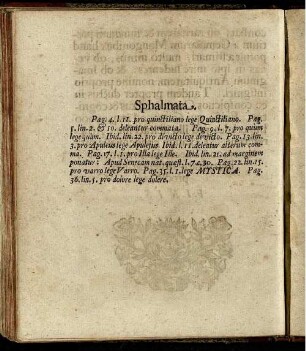 Sphalmata.
Pag. 4. l. 12. pro quinctiliano lege Quinctiliano. Pag.
5. lin. 2. & 10. deleantur commata. Pag. 9. l. 7. pro quum
lege quàm. Ibid. lin. 22. pro lege devicto. Pag. 13. lin.
3. pro Apuleus lege Apulejus. Ibid. l. 11 deleatur alterum com-
ma. Pag. 17. l. 1. pro Illa lege Ille. Ibid. lin. 21. ad marginem
ponatur: Apud Senecam nat. quæst. l. 7. c. 30. Pag. 22. lin. 15.
pro varro lege Varro. Pag. 35. l. 1. lege MYSTICA. Pag.
36. lin. 5. pro dolore lege dolere.